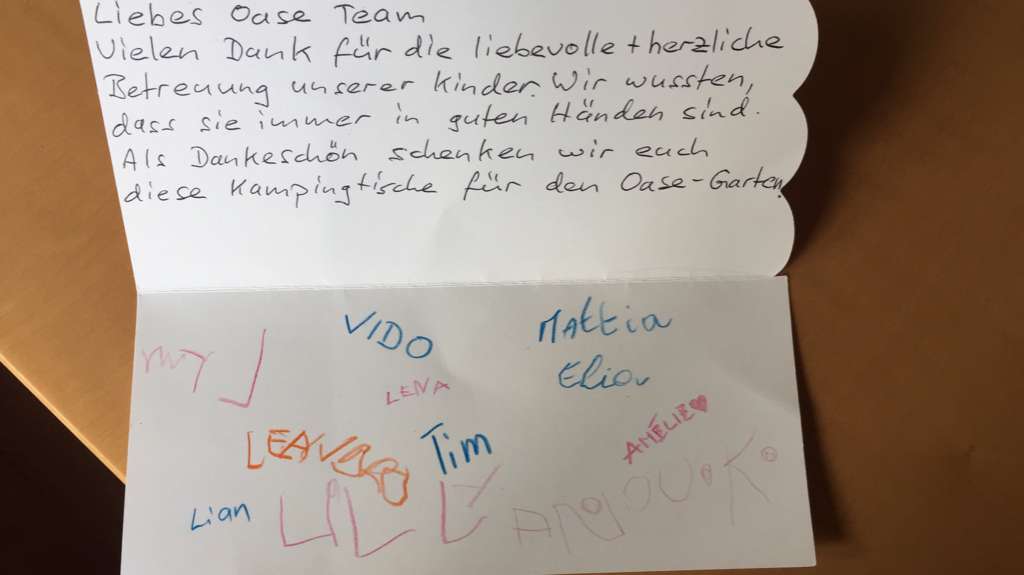 Liebes Oase Team
Vielen Dank für die liebevolle + herzliche
Betreuung unserer Kinder. Wir wussten,
dass sie immer in guten Händen sind.
Als Dankeschön schenken wir euch
diese Kampingtische für den Oase-Garten.
VIDO
Mattia
LENA
Elia
AMÉLIE
Tim
Lian
LILLY
ANOUK